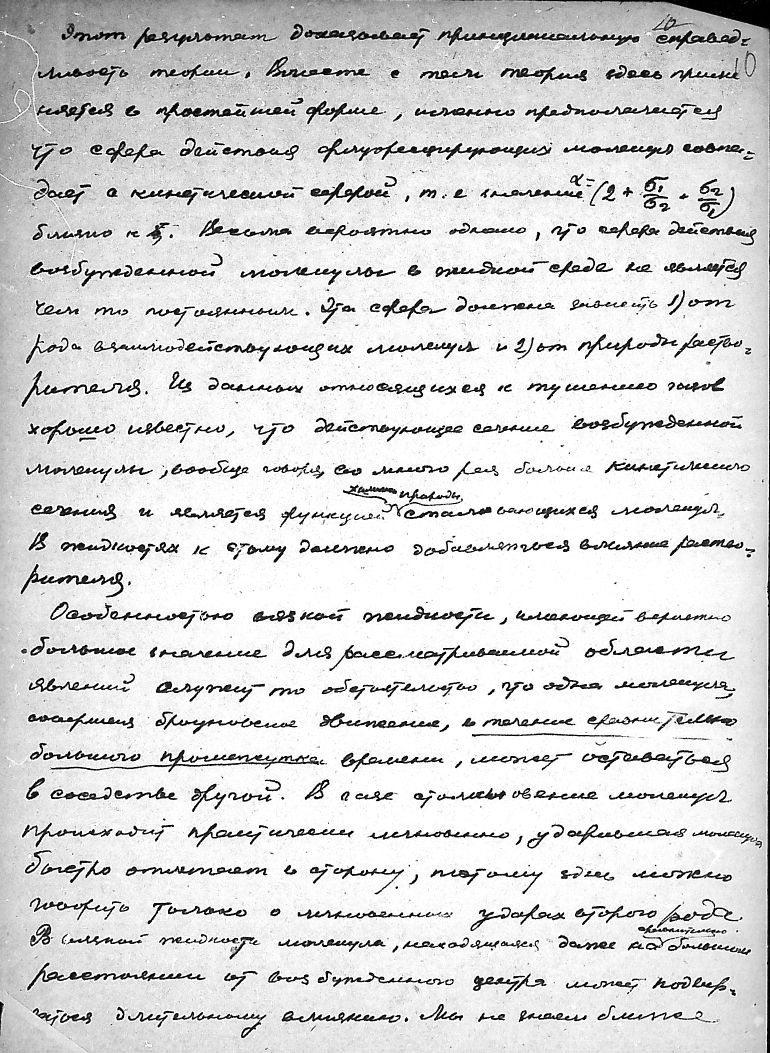 10
10
Этот результат доказывает принципиальную справед-
ливость теории. Вместе с тем теория здесь приме
няется в простейшей форме, именно предполагается
что сфера действия флуоресцирующих молекул совпа-
дает с кинетической сферой, т. е значение α=(2 + σ₁/σ₂ + σ₂/σ₁)
близко к . Весьма вероятно однако, что сфера действия
возбужденной молекулы в жидкой среде не является
чем то постоянным. Эта сфера должна зависеть 1) от
рода взаимодействующих молекул и 2) от природы раство-
рителя. Из данных относящихся к тушению газов
хорошо известно, что действующее сечение возбужденной
молекулы, вообще говоря, во много раз больше кинетического
химич природы
сечения и является функцией сталкивающихся молекул.
В жидкостях к этому должно добавляться влияние раство-
рителя.
Особенностью вязкой жидкости, имеющей вероятно
большое значение для рассматриваемой области
явлений служит то обстоятельство, что одна молекула,
совершая броуновское движение, в течение сравнительно
большого промежутка времени, может оставаться
в соседстве другой. В газе столкновение молекул
происходит практически мгновенно, ударившая молекула
быстро отлетает в сторону, потому здесь можно
говорить только о мгновенных ударах второго рода.
сравнительно
В вязкой жидкости молекула, находящаяся даже на большом
расстоянии от возбужденного центра может подвер-
гаться длительному влиянию. Мы не знаем ближе